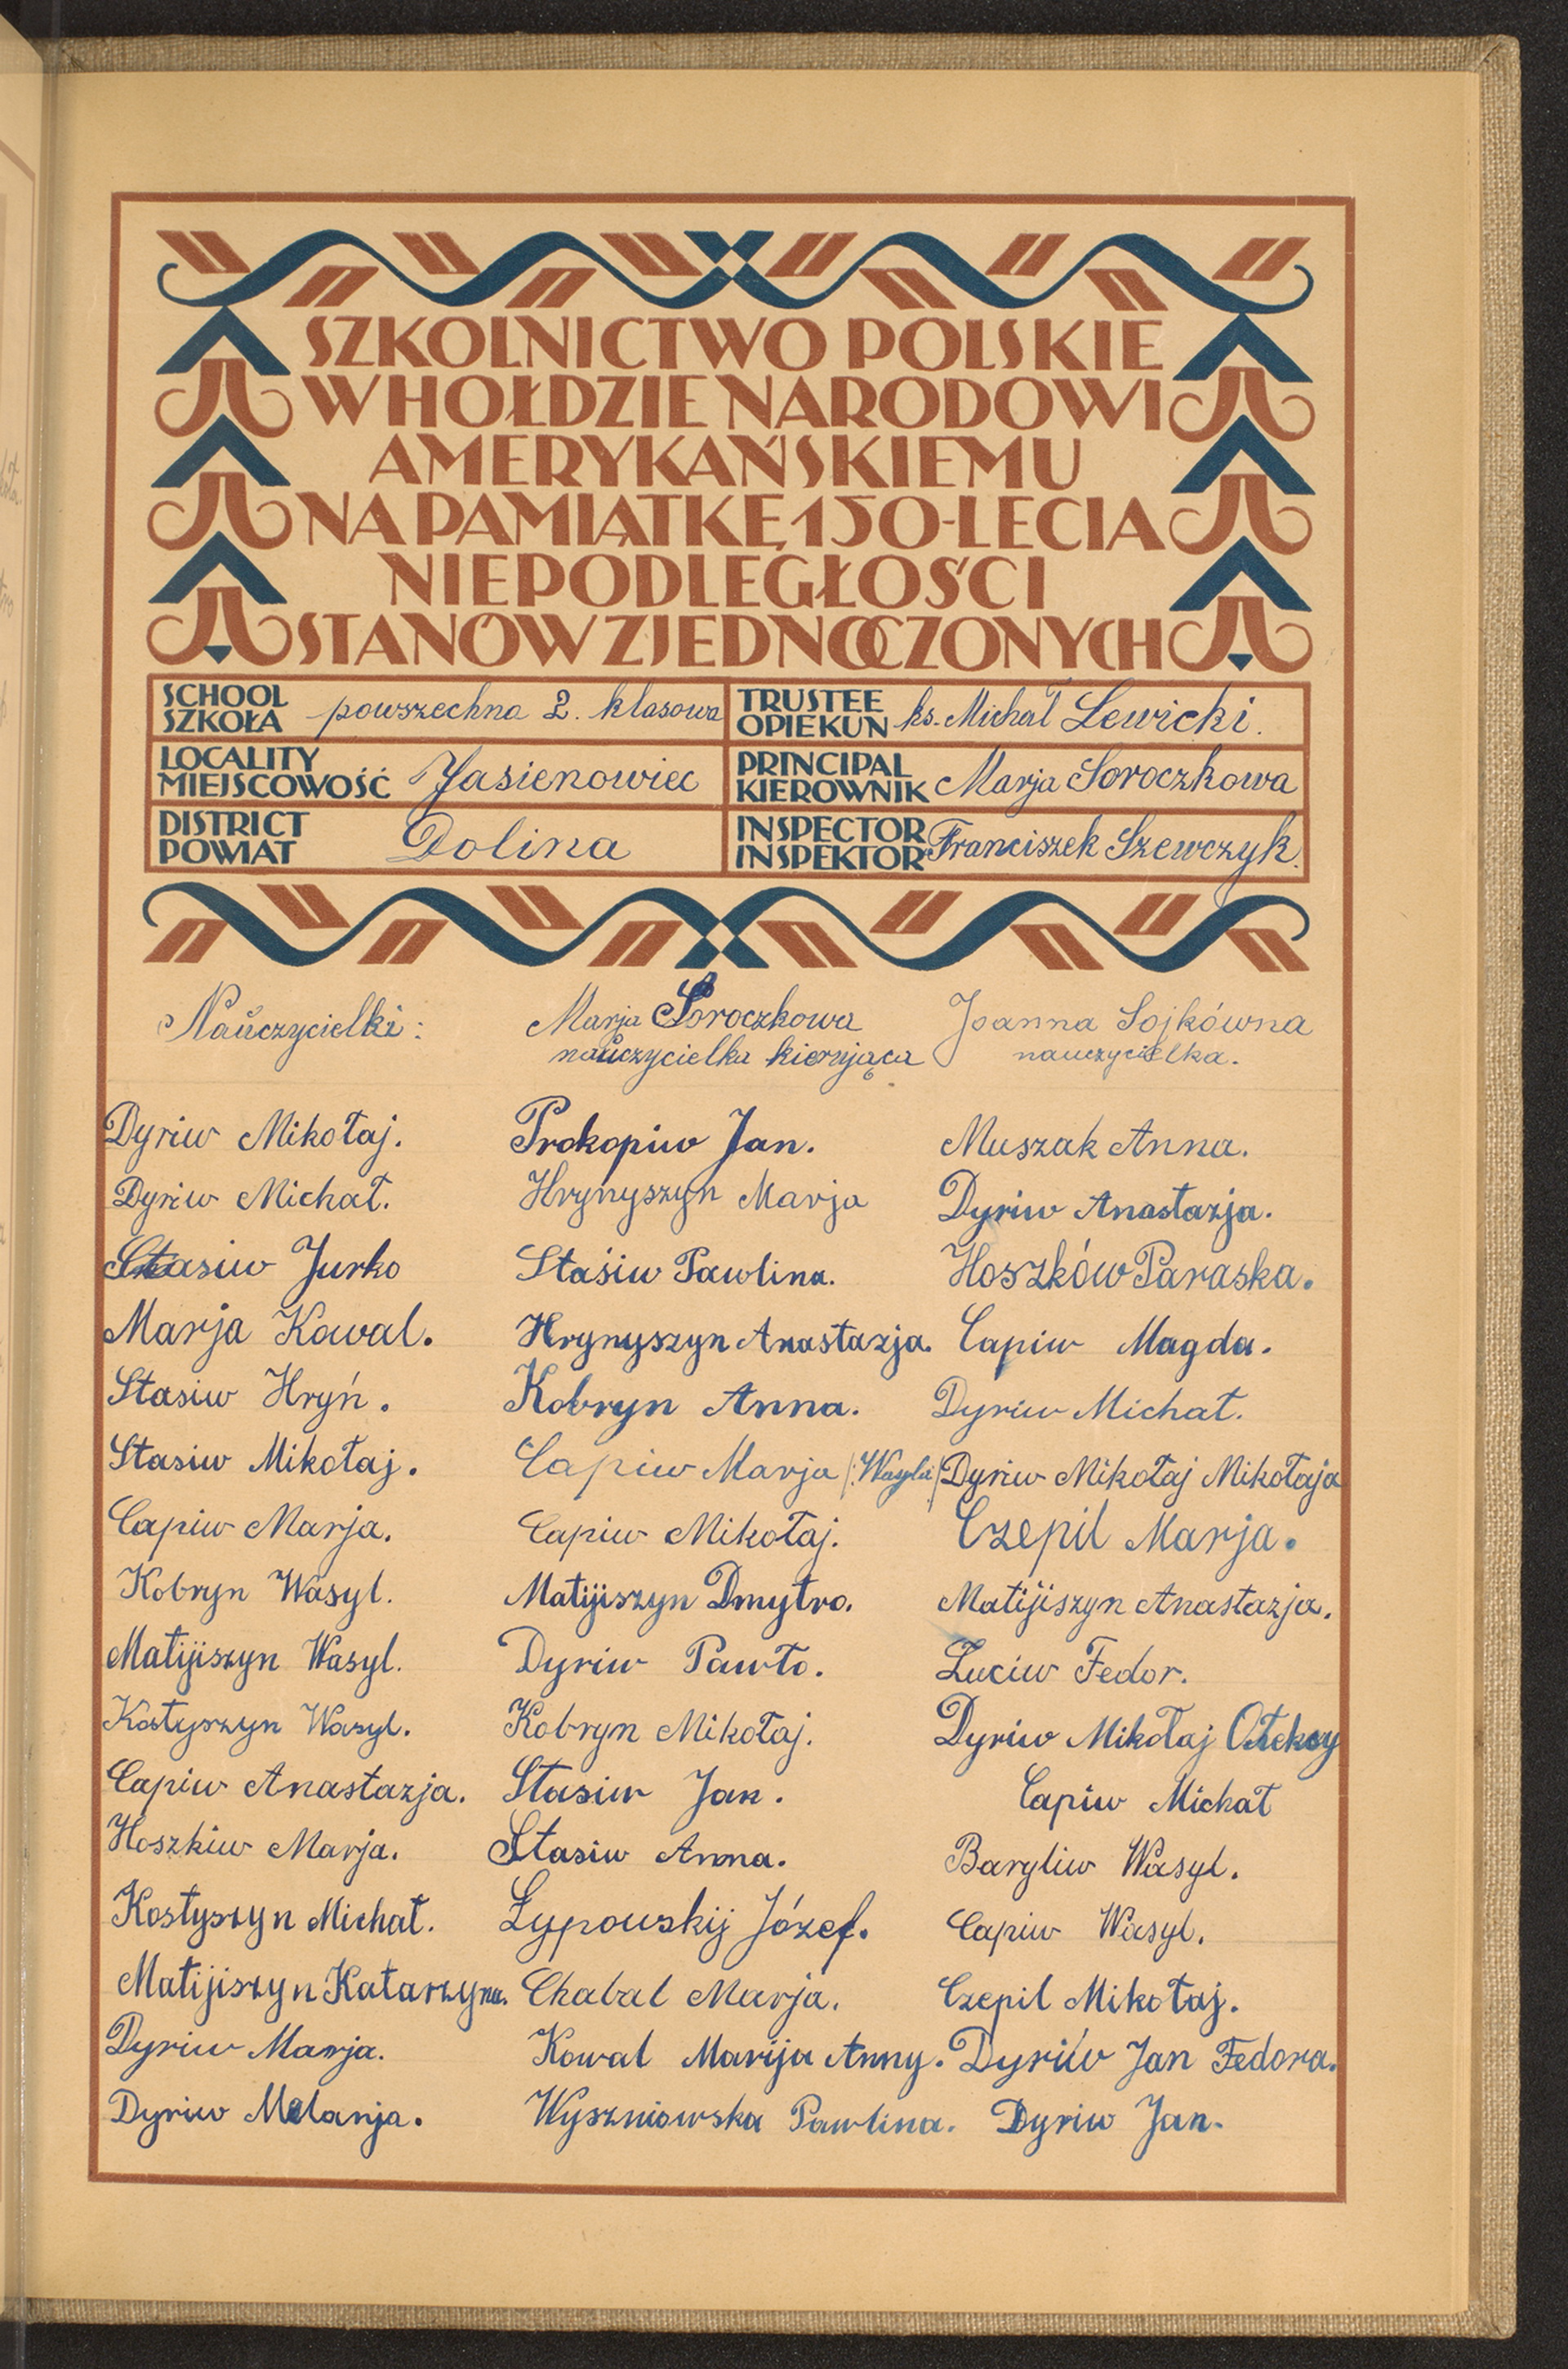 SZKOLNICTWO POLSKIE
W HOŁDZIE NARODOWI
AMERYKAŃSKIEMU
NA PAMIĄTKĘ 150-LECIA
NIEPODLEGŁOŚCI
STANÓW ZJEDNOCZONYCH
SCHOOL
SZKOŁA powszechna 2. klasowa
TRUSTEE
OPIEKUN ks. Michał Lewicki.
LOCALITY
MIEJSCOWOŚĆ Jasienowiec
PRINCIPAL
KIEROWNIK Marja Soroczkowa
DISTRICT
POWIAT Dolina
INSPECTOR
INSPEKTOR Franciszek Szewczyk.
Nauczycielki: Marja Soroczkowa Joanna Sojkówna
nauczycielka kierująca nauczycielka.
Dyriw Mikołaj. Prokopiw Jan. Muszak Anna.
Dyriw Michał. Hrynyszyn Marja Dyriw Anastazja.
Stasiw Jurko Staśiw Pawlina. Hoszków Paraska.
Marja Kowal. Hrynyszyn Anastazja. Capiw Magda.
Stasiw Hryń. Kobryn Anna. Dyriw Michał.
Stasiw Mikołaj. Capiw Marja /: Wasyla :/ Dyriw Mikołaj Mikołaja
Capiw Marja. Capiw Mikołaj. Czepil Marja.
Kobryn Wasyl. Matijiszyn Dmytro. Matijiszyn Anastazja.
Matijiszyn Wasyl. Dyriw Pawło. Łuciw Fedor.
Kostyszyn Wasyl. Kobryn Mikołaj. Dyriw Mikołaj Ołeksy
Capiw Anastazja. Stasiw Jan. Capiw Michał
Hoszkiw Marja. Stasiw Anna. Baryliw Wasyl.
Kostyszyn Michał. Łypowskij Józef. Capiw Wasyl.
Matijiszyn Katarzyna. Chabal Marja. Czepil Mikołaj.
Dyriw Marja. Kowal Marija Anny. Dyriw Jan Fedora.
Dyriw Melanja. Wyszniowska Pawlina. Dyriw Jan.